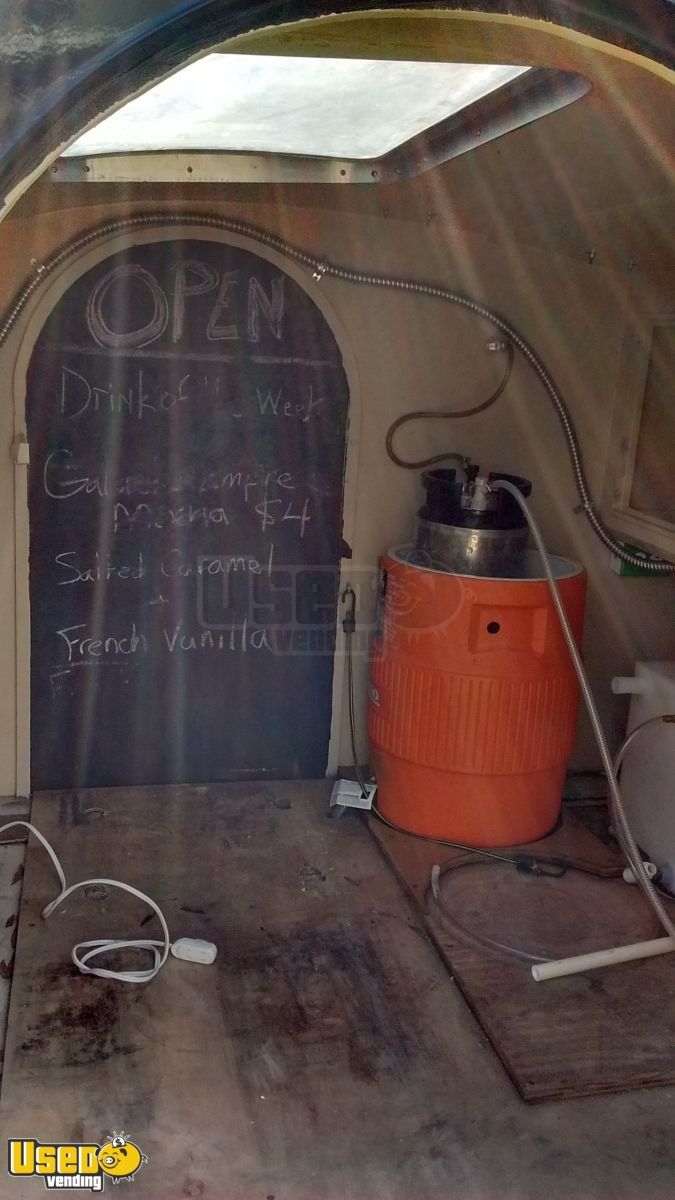 OPEN
Drink of Week
mpire
$4
Salted Caramel
+
French Vanilla
F
USED
vending
USED
vending